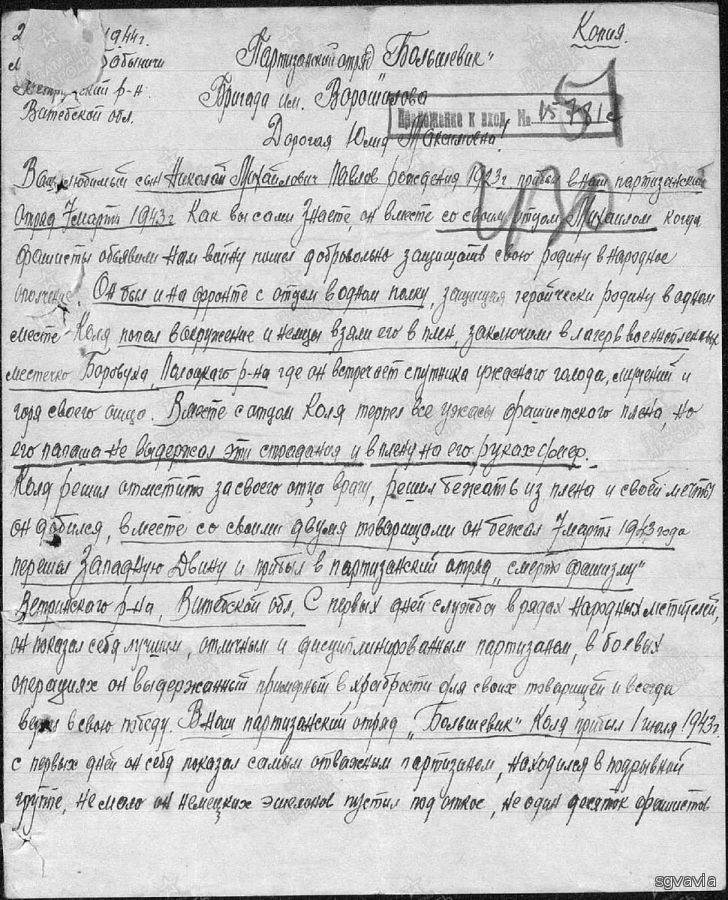 Копия.
1944г.
Партизанский отряд "Большевик"
Бригада им. Ворошилова
р-н
Витебской обл.
Приложение к вход. № 15781с
Дорогая Юлия Максимовна!
Ваш любимый сын Николай Михайлович Павлов рождения 1923г прибыл в наш партизанский
отряд 7 марта 1943г Как вы сами знаете, он вместе со своим отцом Михаилом когда
фашисты объявили нам войну пошел добровольно защищать свою родину в народное
ополчение. Он был и на фронте с отцом в одном полку, защищая геройчески родину в одном
месте - Коля попал в окружение и немцы взяли его в плен, заключили в лагерь военнопленных
местечко Боровуха, Полоцкого р-на где он встречает спутника ужасного голода, мучений и
горя своего отца. Вместе с отцом Коля терпел все ужасы фашистского плена, но
его папаша не выдержал эти страдания и в плену на его руках умер.
Коля решил отмстить за своего отца врагу, решил бежать из плена и своей мечты
он добился, вместе со своими двумя товарищами он бежал 7 марта 1943 года
перешол Западную Двину и прибыл в партизанский отряд "смерть фашизму"
Ветринского р-на, Витебской обл, С первых дней службы в рядах народных мстителей,
он показал себя лучшим, отличным и дисциплинированым партизаном, в боевых
операциях он выдержанный примерный в храбрости для своих товарищей и всегда
верил в свою победу. В наш партизанский отряд "Большевик" Коля прибыл 1 июля 1943г
с первых дней он себя показал самым отважным партизаном, находился в подрывной
группе, не мало он немецких эшелонов пустил под откос, не один десяток фашистов
sgvavia